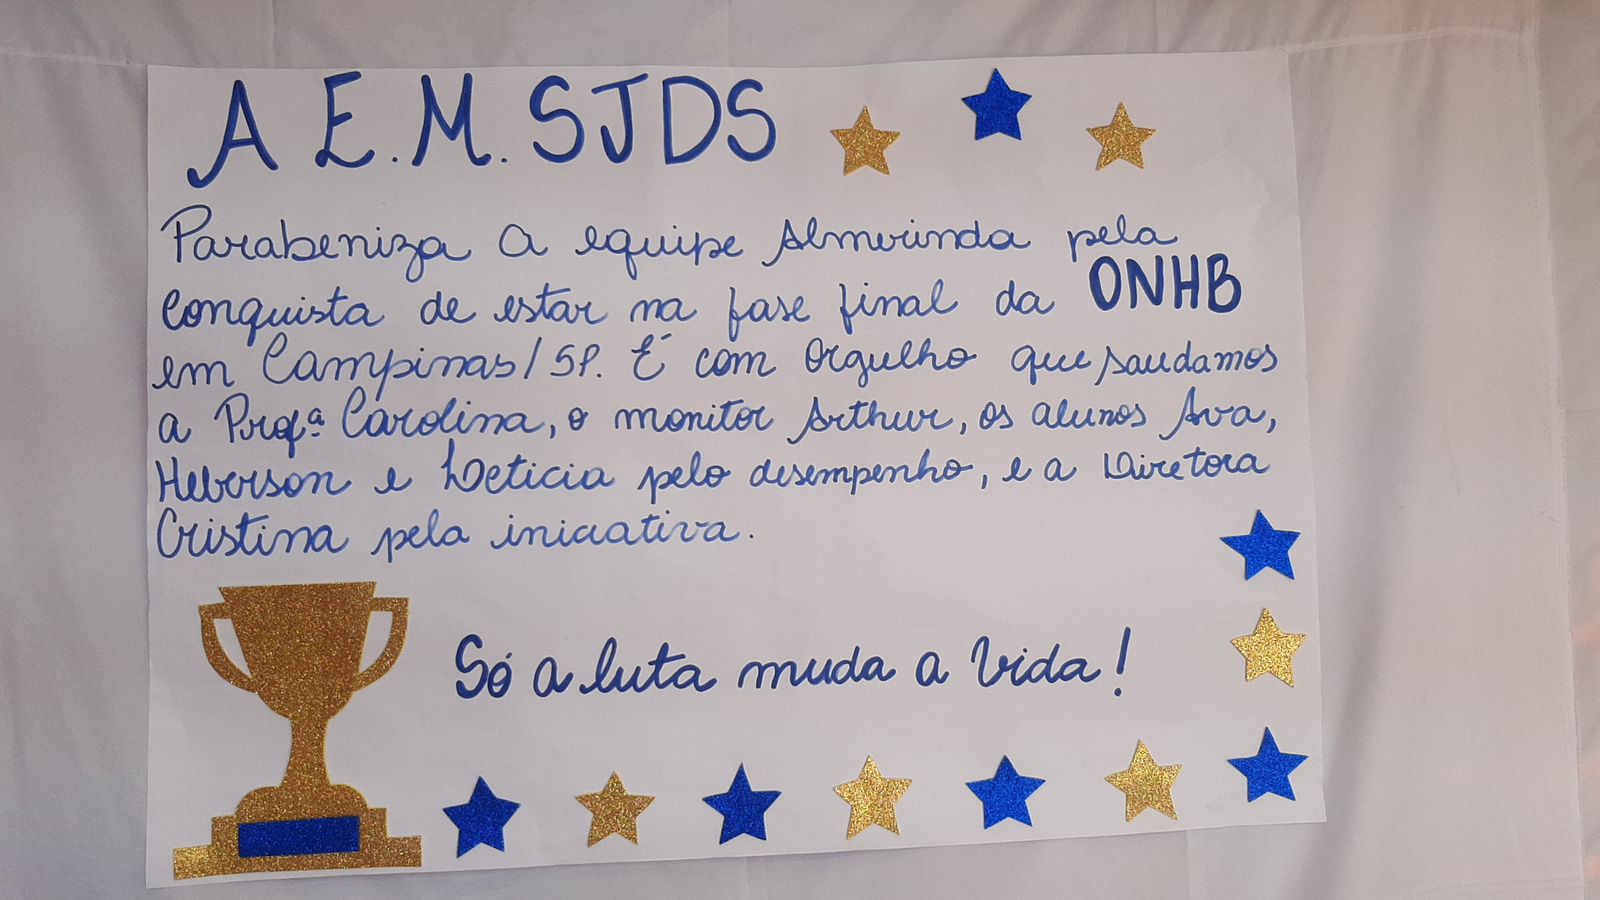 A E.M. SJDS
Parabeniza a equipe Almerinda pela
conquista de estar na fase final da ONHB
em Campinas/SP. É com orgulho que saudamos
a Profª Carolina, o monitor Arthur, os alunos Ava,
Heberson e Leticia pelo desempenho, e a Diretora
Cristina pela iniciativa.
Só a luta muda a vida!